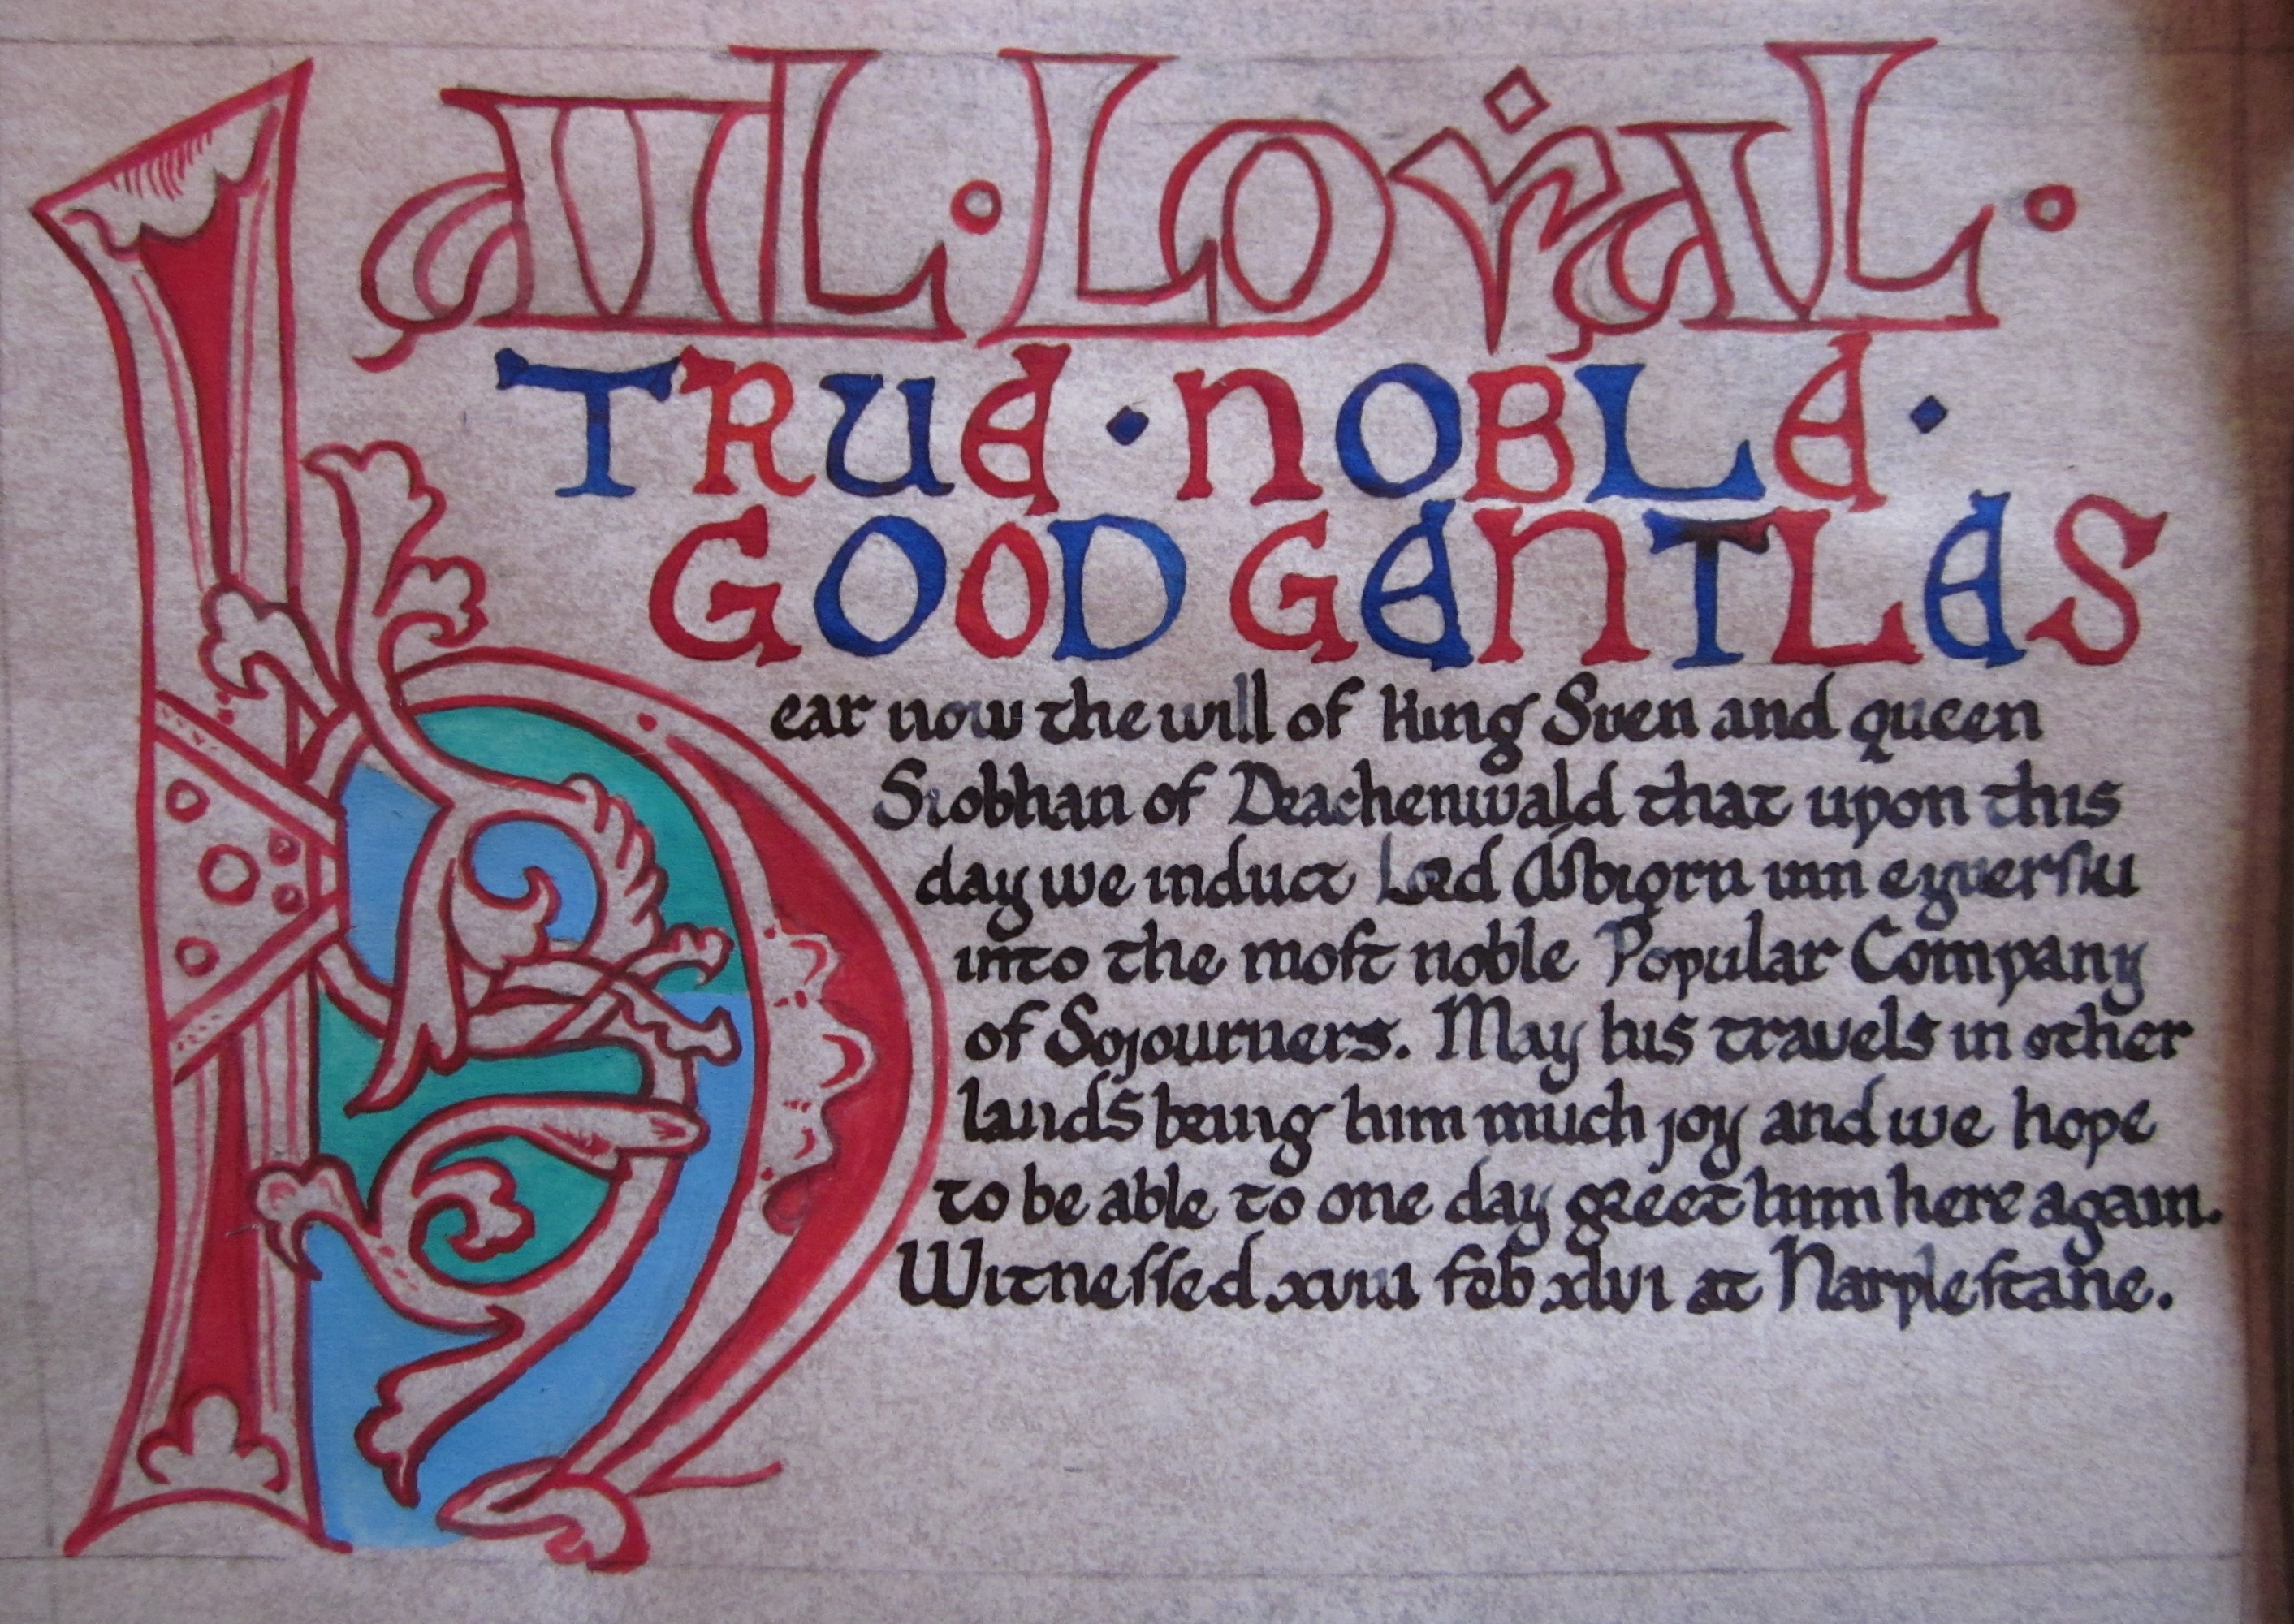 hail · Loyal ·
TRUE · NOBLE ·
GOOD GENTLES
ear now the will of King Sven and queen
Siobhan of Drachenwald that upon this
day we induct Lord Asbiǫrn inn eyverſki
into the moſt noble Popular Company
of Sojourners. May his travels in other
lands bring him much joy and we hope
to be able to one day greet him here again.
Witneſſed xviii feb xlvi at Narpleſtane.